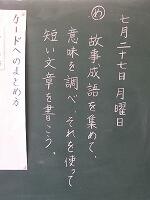 七月二十七日 月曜日
め 故事成語を集めて、
意味を調べ、それを使って
短い文章を書こう。
カードへのまとめ方